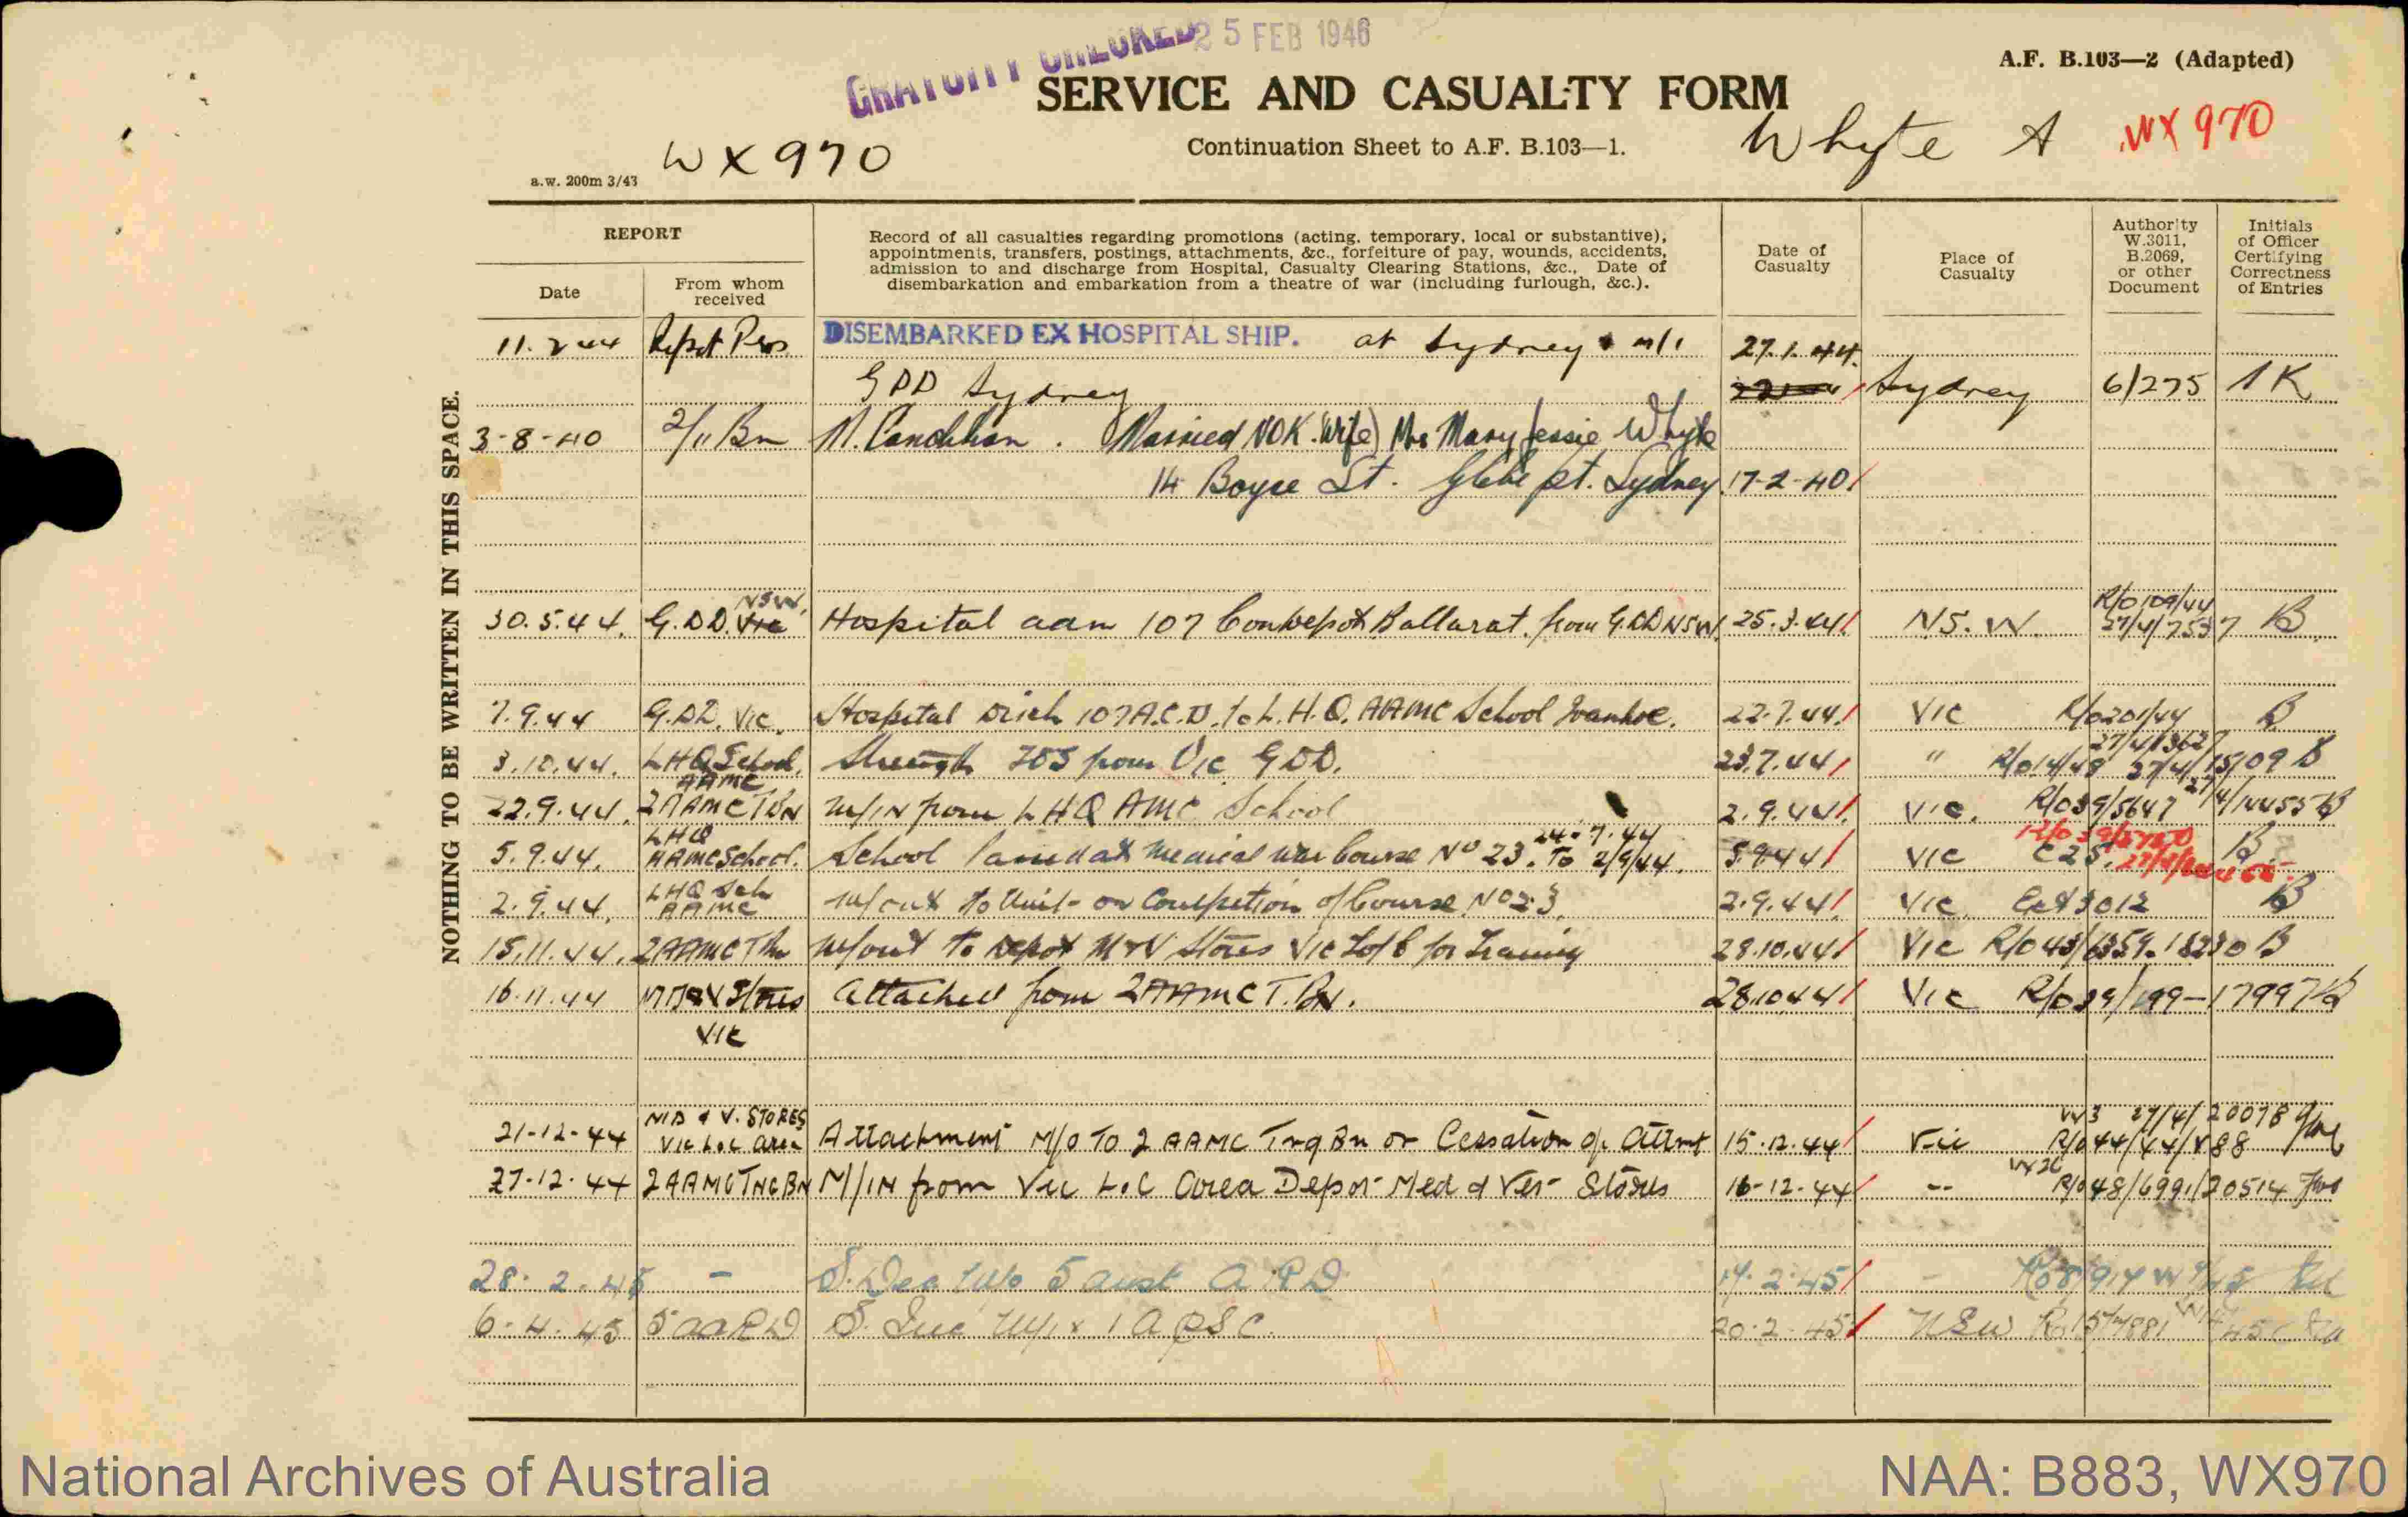 GRATUITY CHECKED 25 FEB 1946
A.F. B.103—2 (Adapted)
SERVICE AND CASUALTY FORM
Continuation Sheet to A.F. B.103—1.
Whyte A WX 970
a.w. 200m 3/43
WX970
NOTHING TO BE WRITTEN IN THIS SPACE.
REPORT
Date
From whom received
Record of all casualties regarding promotions (acting, temporary, local or substantive),
appointments, transfers, postings, attachments, &c., forfeiture of pay, wounds, accidents,
admission to and discharge from Hospital, Casualty Clearing Stations, &c., Date of
disembarkation and embarkation from a theatre of war (including furlough, &c.).
Date of Casualty
Place of Casualty
Authority W.3011, B.2069, or other Document
Initials of Officer Certifying Correctness of Entries
11.2.44 DISEMBARKED EX HOSPITAL SHIP. at Sydney 27.1.44.
GDD Sydney Sydney 6/275
3-8-40 2/11 Bn M. Condition. Married NOK (Wife) Mrs Mary Jessie Whyte
14 Boyce St. Glebe pt. Sydney 17-2-40
30.5.44. G.DD. Vic NSW. Hospital adm 107 Condepot Ballarat. from G.DD NSW. 25.3.44 N.S.W. R/O 109/44 B
7.9.44 G.DD. Vic. Hospital Disch 107 A.C.D. to L.H.Q. AAMC School Ivanhoe. 22.7.44 VIC R/O 201/44 B
3.10.44. LHQ School. AAMC Strength TOS from Vic GDD. 23.7.44 " B
22.9.44. 2AAMC T BN M/IN from LHQ AMC School 2.9.44 VIC. R/O 39/5647 B
5.9.44. LHQ AAMC School. School Medical Course No 23. 24.7.44 To 2/9/44. VIC B
2.9.44. LHQ Sch AAMC M/out to Unit on Completion of Course No 23. 2.9.44 VIC 3012 B
15.11.44. 2AAMC T Bn M/out to Depot M&V Stores VIC LofC for Training 28.10.44 VIC B
16.11.44 Stores VIC Attached from 2AAMC T.BN. 28.10.44 VIC
21-12-44 M D & V. STORES Vic L.C Area Attachment M/O To 2 AAMC Trg Bn on Cessation of Attmt 15.12.44 Vic
27-12-44 2AAMC TNG BN M/IN from Vic L.C Area Depot Med & Vet Stores 16-12-44 -- R/O 48/6991/20514
28.2.45 — S. Dec M/o 5 Aust A.R.D. 14.2.45
6.4.45 5 AARD S. Inc 20.2.45 NSW
National Archives of Australia
NAA: B883, WX970